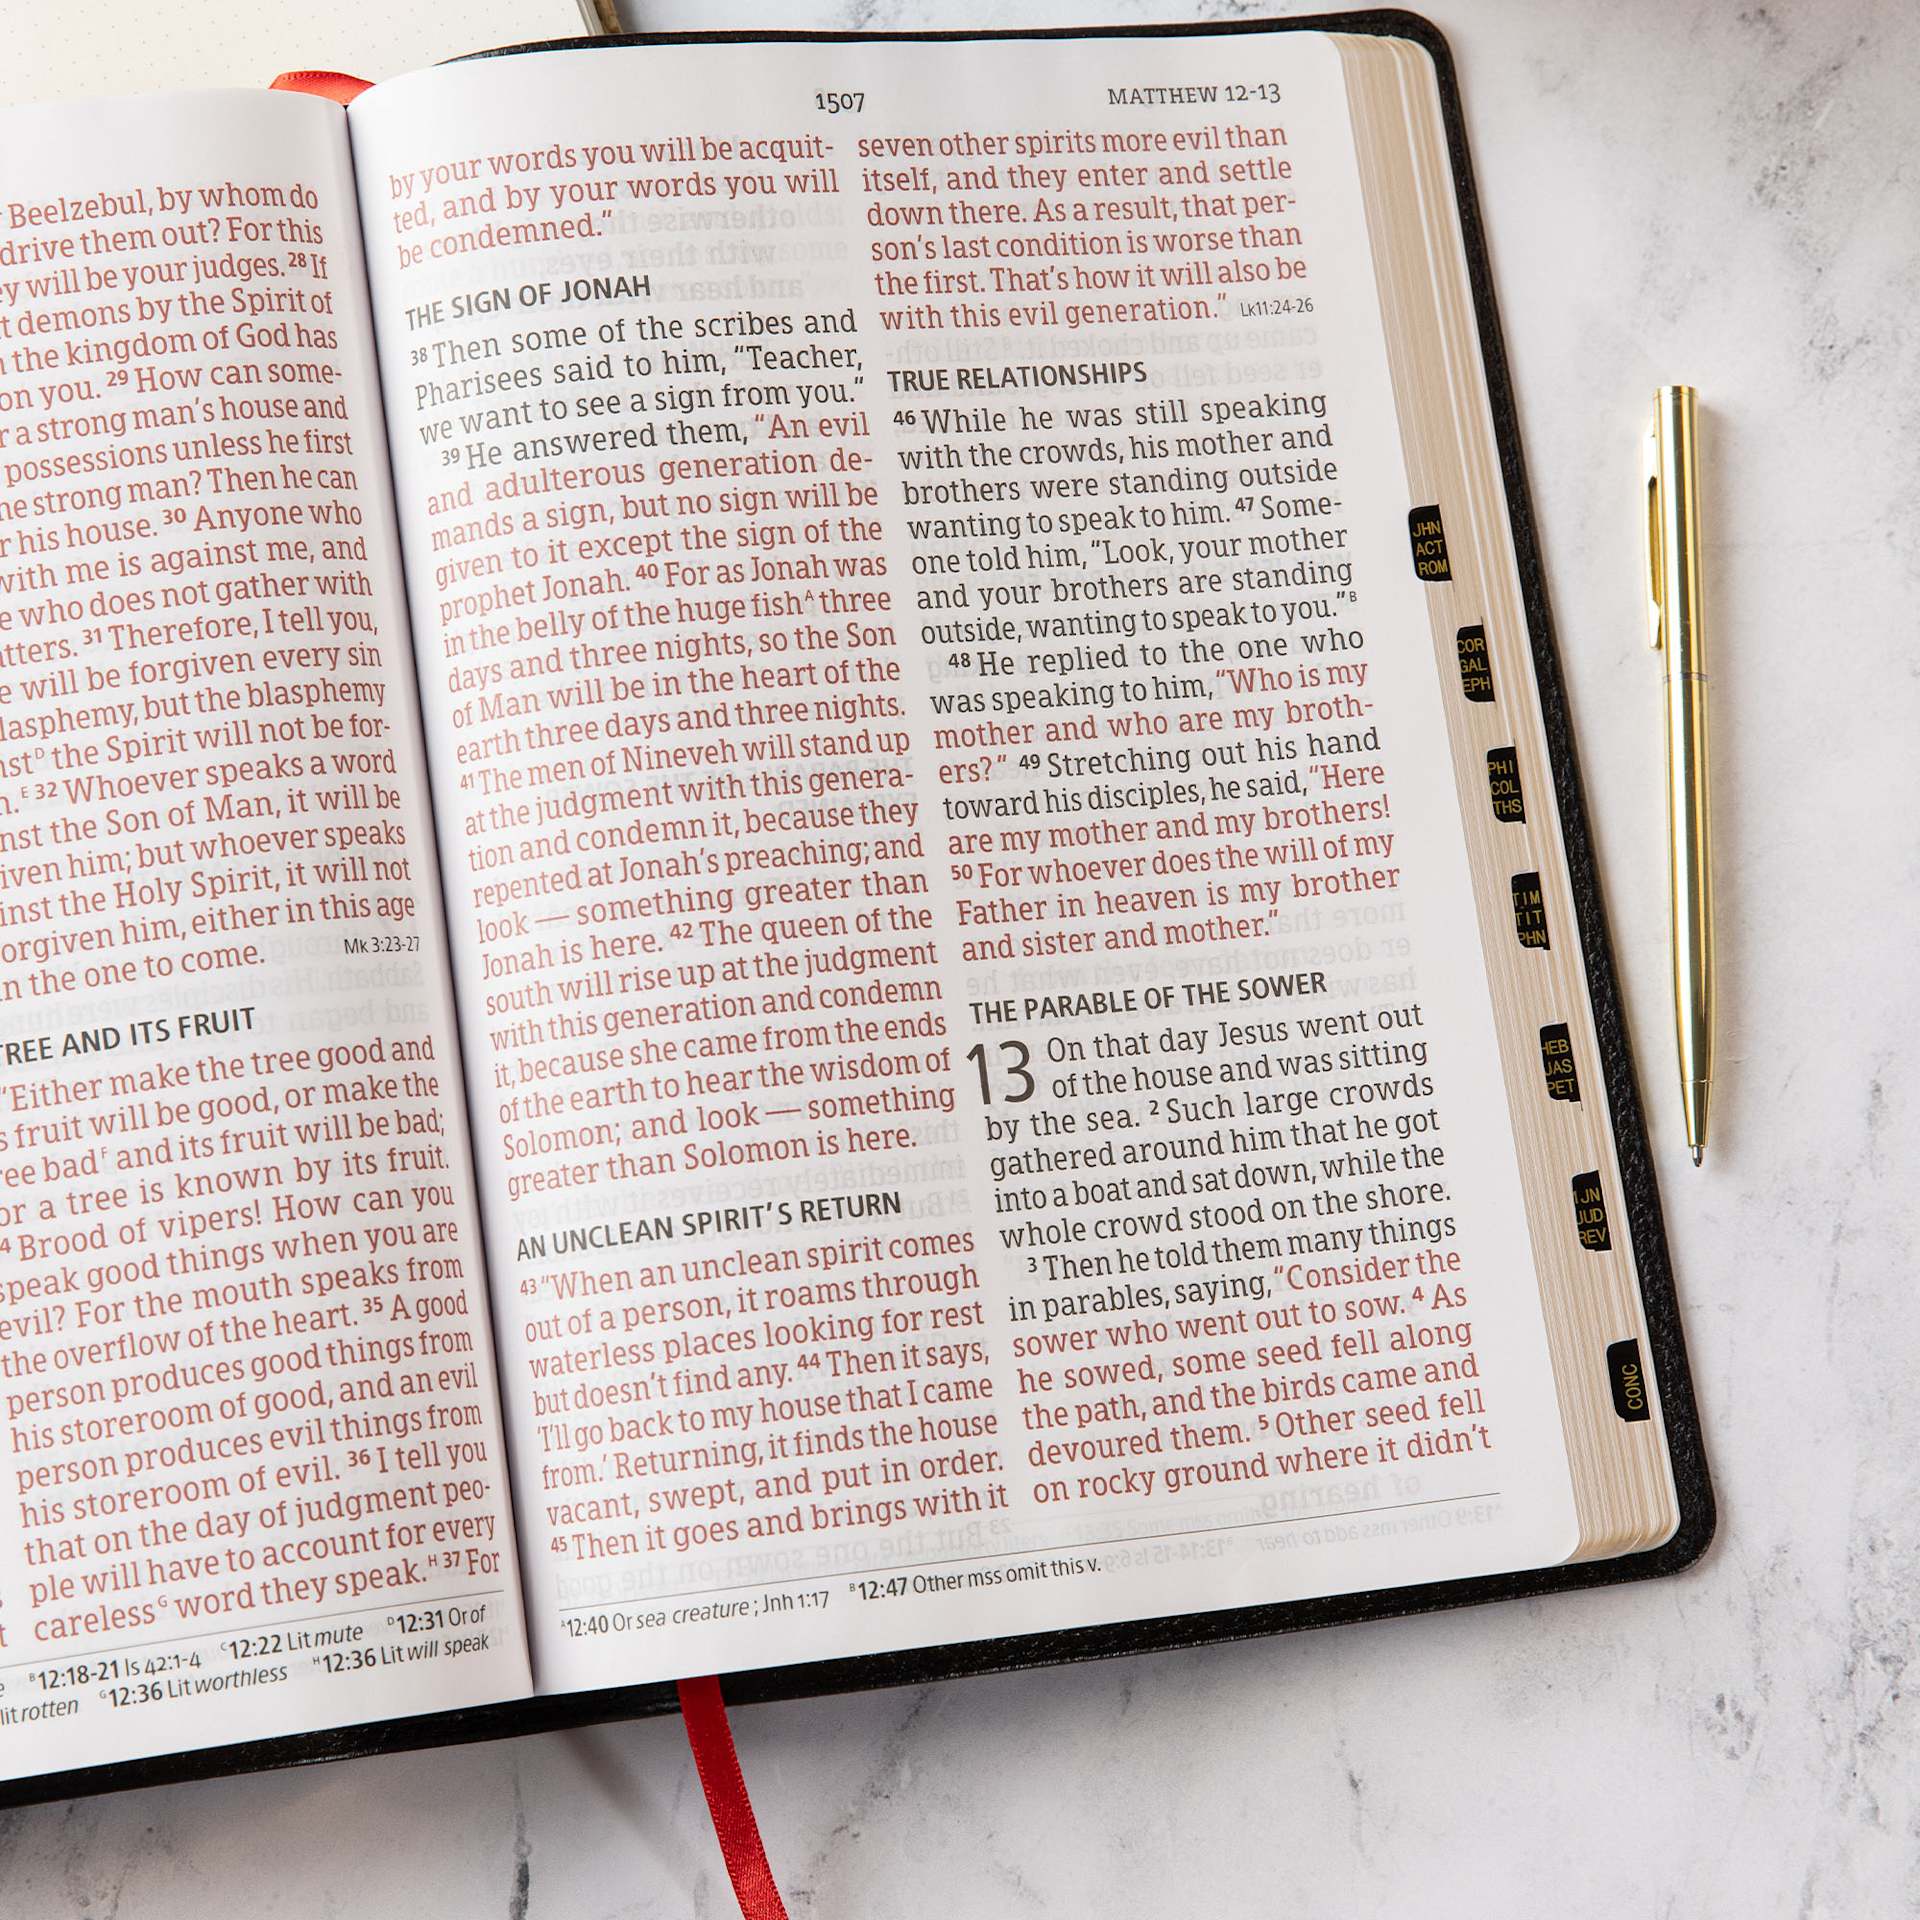 Beelzebul, by whom do
drive them out? For this
will be your judges. 28 If
demons by the Spirit of
the kingdom of God has
on you. 29 How can some-
a strong man's house and
possessions unless he first
strong man? Then he can
his house. 30 Anyone who
with me is against me, and
who does not gather with
31 Therefore, I tell you,
will be forgiven every sin
blasphemy, but the blasphemy
D the Spirit will not be for-
E 32 Whoever speaks a word
the Son of Man, it will be
him; but whoever speaks
the Holy Spirit, it will not
forgiven him, either in this age
in the one to come. Mk 3:23-27
TREE AND ITS FRUIT
"Either make the tree good and
fruit will be good, or make the
bad F and its fruit will be bad;
a tree is known by its fruit.
Brood of vipers! How can you
speak good things when you are
evil? For the mouth speaks from
the overflow of the heart. 35 A good
person produces good things from
his storeroom of good, and an evil
person produces evil things from
his storeroom of evil. 36 I tell you
that on the day of judgment peo-
ple will have to account for every
careless G word they speak. H 37 For
B 12:18-21 Is 42:1-4 C 12:22 Lit mute D 12:31 Or of
rotten G 12:36 Lit worthless H 12:36 Lit will speak
1507 MATTHEW 12-13
by your words you will be acquit-
ted, and by your words you will
be condemned."
THE SIGN OF JONAH
38 Then some of the scribes and
Pharisees said to him, "Teacher,
we want to see a sign from you."
39 He answered them, "An evil
and adulterous generation de-
mands a sign, but no sign will be
given to it except the sign of the
prophet Jonah. 40 For as Jonah was
in the belly of the huge fish A three
days and three nights, so the Son
of Man will be in the heart of the
earth three days and three nights.
41 The men of Nineveh will stand up
at the judgment with this genera-
tion and condemn it, because they
repented at Jonah's preaching; and
look — something greater than
Jonah is here. 42 The queen of the
south will rise up at the judgment
with this generation and condemn
it, because she came from the ends
of the earth to hear the wisdom of
Solomon; and look — something
greater than Solomon is here.
AN UNCLEAN SPIRIT'S RETURN
43 "When an unclean spirit comes
out of a person, it roams through
waterless places looking for rest
but doesn't find any. 44 Then it says,
'I'll go back to my house that I came
from.' Returning, it finds the house
vacant, swept, and put in order.
45 Then it goes and brings with it
seven other spirits more evil than
itself, and they enter and settle
down there. As a result, that per-
son's last condition is worse than
the first. That's how it will also be
with this evil generation." Lk 11:24-26
TRUE RELATIONSHIPS
46 While he was still speaking
with the crowds, his mother and
brothers were standing outside
wanting to speak to him. 47 Some-
one told him, "Look, your mother
and your brothers are standing
outside, wanting to speak to you." B
48 He replied to the one who
was speaking to him, "Who is my
mother and who are my broth-
ers?" 49 Stretching out his hand
toward his disciples, he said, "Here
are my mother and my brothers!
50 For whoever does the will of my
Father in heaven is my brother
and sister and mother."
THE PARABLE OF THE SOWER
13 On that day Jesus went out
of the house and was sitting
by the sea. 2 Such large crowds
gathered around him that he got
into a boat and sat down, while the
whole crowd stood on the shore.
3 Then he told them many things
in parables, saying, "Consider the
sower who went out to sow. 4 As
he sowed, some seed fell along
the path, and the birds came and
devoured them. 5 Other seed fell
on rocky ground where it didn't
A 12:40 Or sea creature; Jnh 1:17 B 12:47 Other mss omit this v.
JHN
ACT
ROM
COR
GAL
EPH
PHI
COL
THS
TIM
TIT
PHN
HEB
JAS
PET
1JN
JUD
REV
CONC